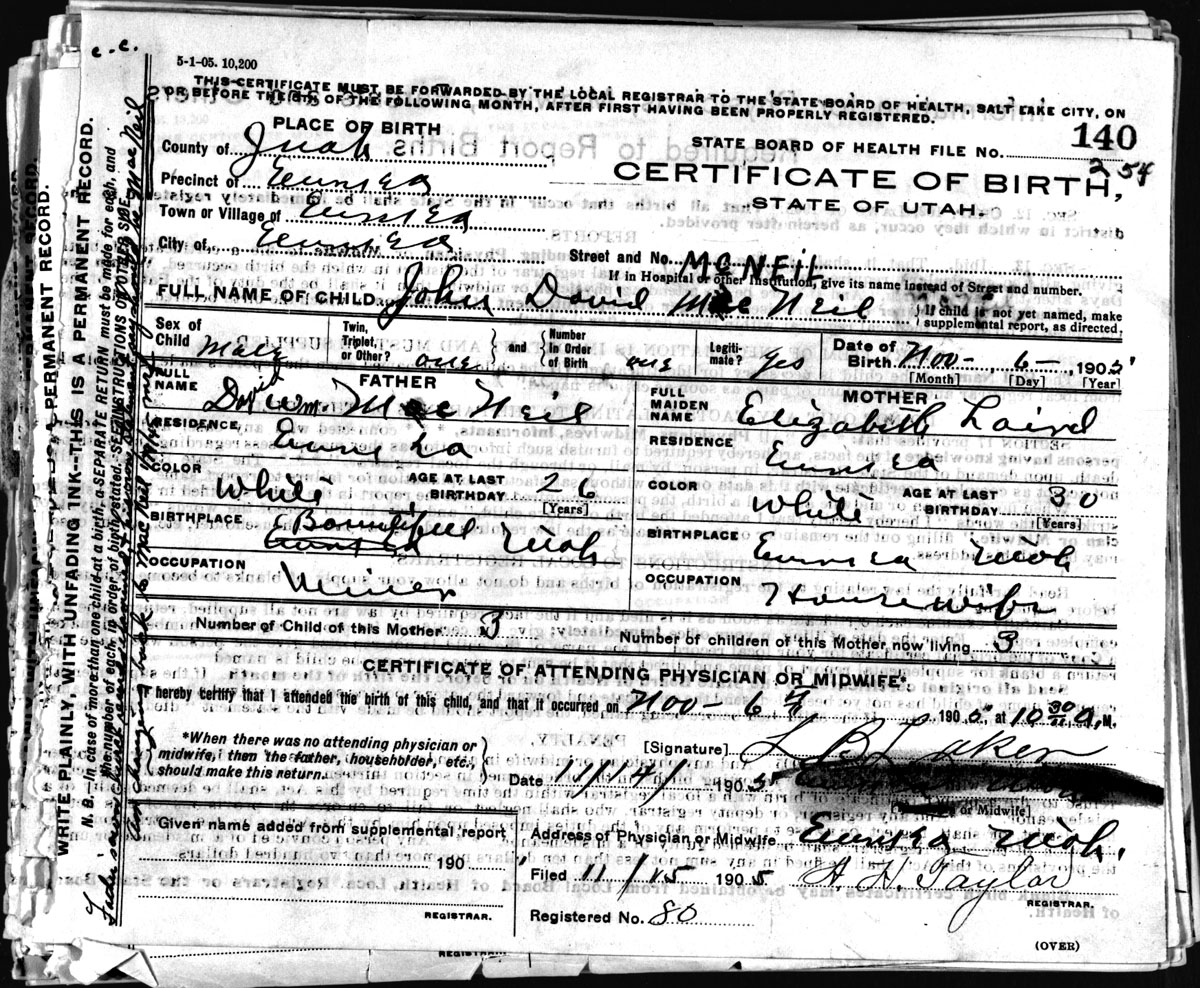 c.c.
5-1-05. 10,200
THIS CERTIFICATE MUST BE FORWARDED BY THE LOCAL REGISTRAR TO THE STATE BOARD OF HEALTH, SALT LAKE CITY, ON
OR BEFORE THE 5TH OF THE FOLLOWING MONTH, AFTER FIRST HAVING BEEN PROPERLY REGISTERED.
PLACE OF BIRTH
County of Juab
Precinct of Eureka
Town or Village of Eureka
City of Eureka
STATE BOARD OF HEALTH FILE No. 140
254
CERTIFICATE OF BIRTH,
STATE OF UTAH.
Street and No.
If in Hospital or other Institution, give its name instead of Street and number.
MCNEIL
FULL NAME OF CHILD John David Mac Neil
If child is not yet named, make
supplemental report, as directed.
Sex of Child male
Twin, Triplet, or Other? one
and
Number In Order of Birth one
Legiti-mate? yes
Date of Birth Nov- 6- 1905
[Month] [Day] [Year]
FATHER
FULL NAME David Wm. Mac Neil
RESIDENCE Eureka
COLOR White
AGE AT LAST BIRTHDAY 26
[Years]
BIRTHPLACE Bountiful Utah
Eureka
OCCUPATION Miner
MOTHER
FULL MAIDEN NAME Elizabeth Laird
RESIDENCE Eureka
COLOR White
AGE AT LAST BIRTHDAY 30
[Years]
BIRTHPLACE Eureka Utah
OCCUPATION Housewife
Number of Child of this Mother 3
Number of children of this Mother now living 3
CERTIFICATE OF ATTENDING PHYSICIAN OR MIDWIFE*
I hereby certify that I attended the birth of this child, and that it occurred on Nov- 6th, 1905 at 10 30 a M.
*When there was no attending physician or
midwife, then the father, householder, etc.,
should make this return.
[Signature] L B Laker
Date 11/14/ 1905
or Midwife)
Given name added from supplemental report
190
REGISTRAR.
Address of Physician or Midwife Eureka Utah.
Filed 11/15 1905 H. H. Taylor
REGISTRAR.
Registered No. 80
(OVER)
WRITE PLAINLY, WITH UNFADING INK—THIS IS A PERMANENT RECORD.
N. B.—In case of more than one child at a birth, a SEPARATE RETURN must be made for each, and
the number of each, in order of birth, stated. SEE INSTRUCTIONS ON OTHER SIDE.
PERMANENT RECORD.
REGISTRAR.